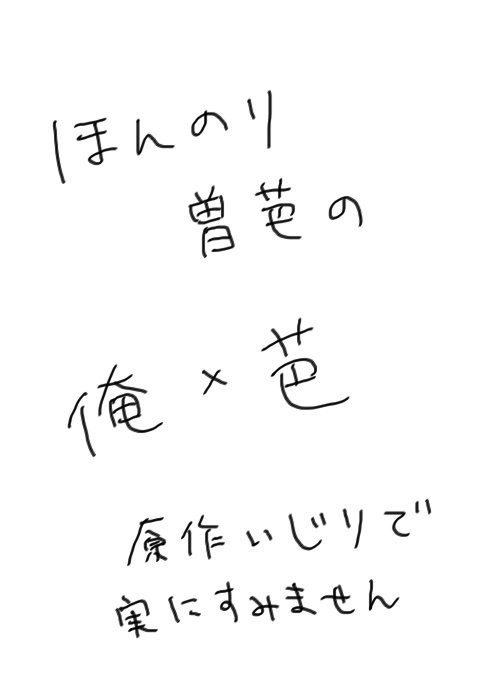 ほんのり
曽芭の
俺×芭
原作いじりで
実にすみません